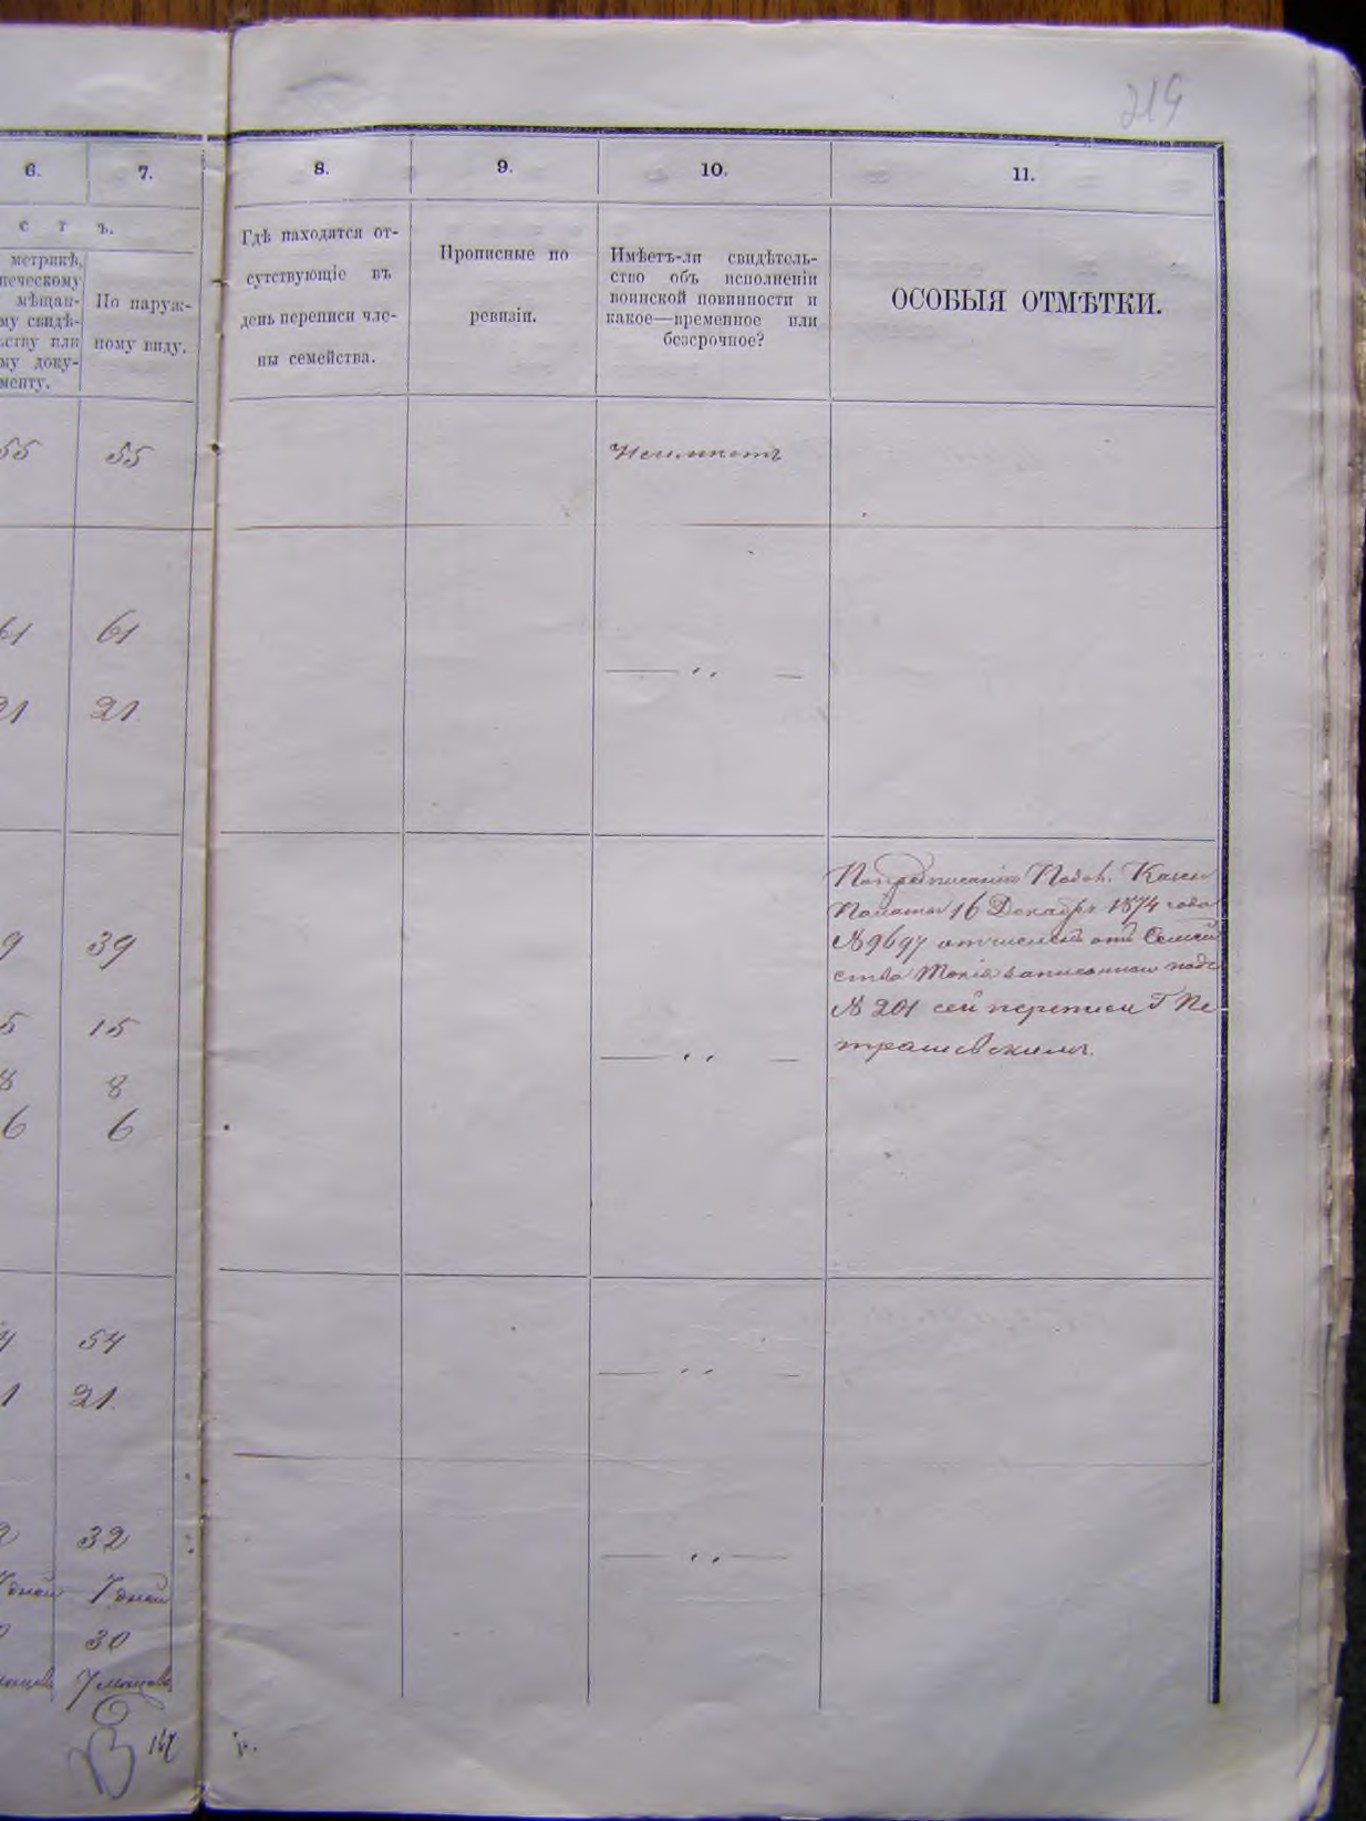 219
6.
7.
8.
9.
10.
11.
с т ъ.
метрикѣ,
печескому
мѣщан-
му свидѣ-
ству или
му доку-
менту.
По наруж-
ному виду.
Гдѣ находятся от-
сутствующіе въ
день переписи чле-
ны семейства.
Прописные по
ревизіи.
Имѣетъ-ли свидѣтель-
ство объ исполненіи
воинской повинности и
какое—временное или
безсрочное?
ОСОБЫЯ ОТМѢТКИ.
55 55
Неимѣетъ
61 61
— „ —
21 21
По предписанію Подол. Казен
Палаты 16 Декабря 1874 года
№ 9697 отчисленъ отъ Семей
ства записаннаго подъ
№ 201 сей переписи Г Пе
трашевскимъ.
9 39
5 15
— „ —
8 8
6 6
4 54
— „ —
1 21
2 32
— „ —
7 дней 7 дней
0 30
7 мѣсяцев